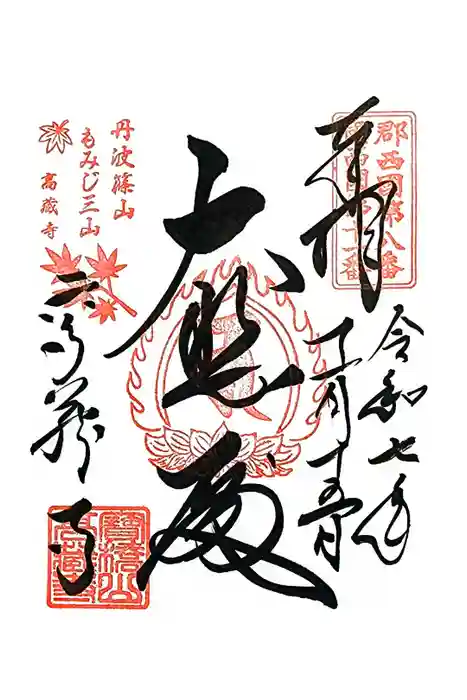 奉拝
郡西国第八番
令和七年
大悲殿
丹波篠山
もみじ三山
高蔵寺
高蔵寺
寶橋山
高蔵寺